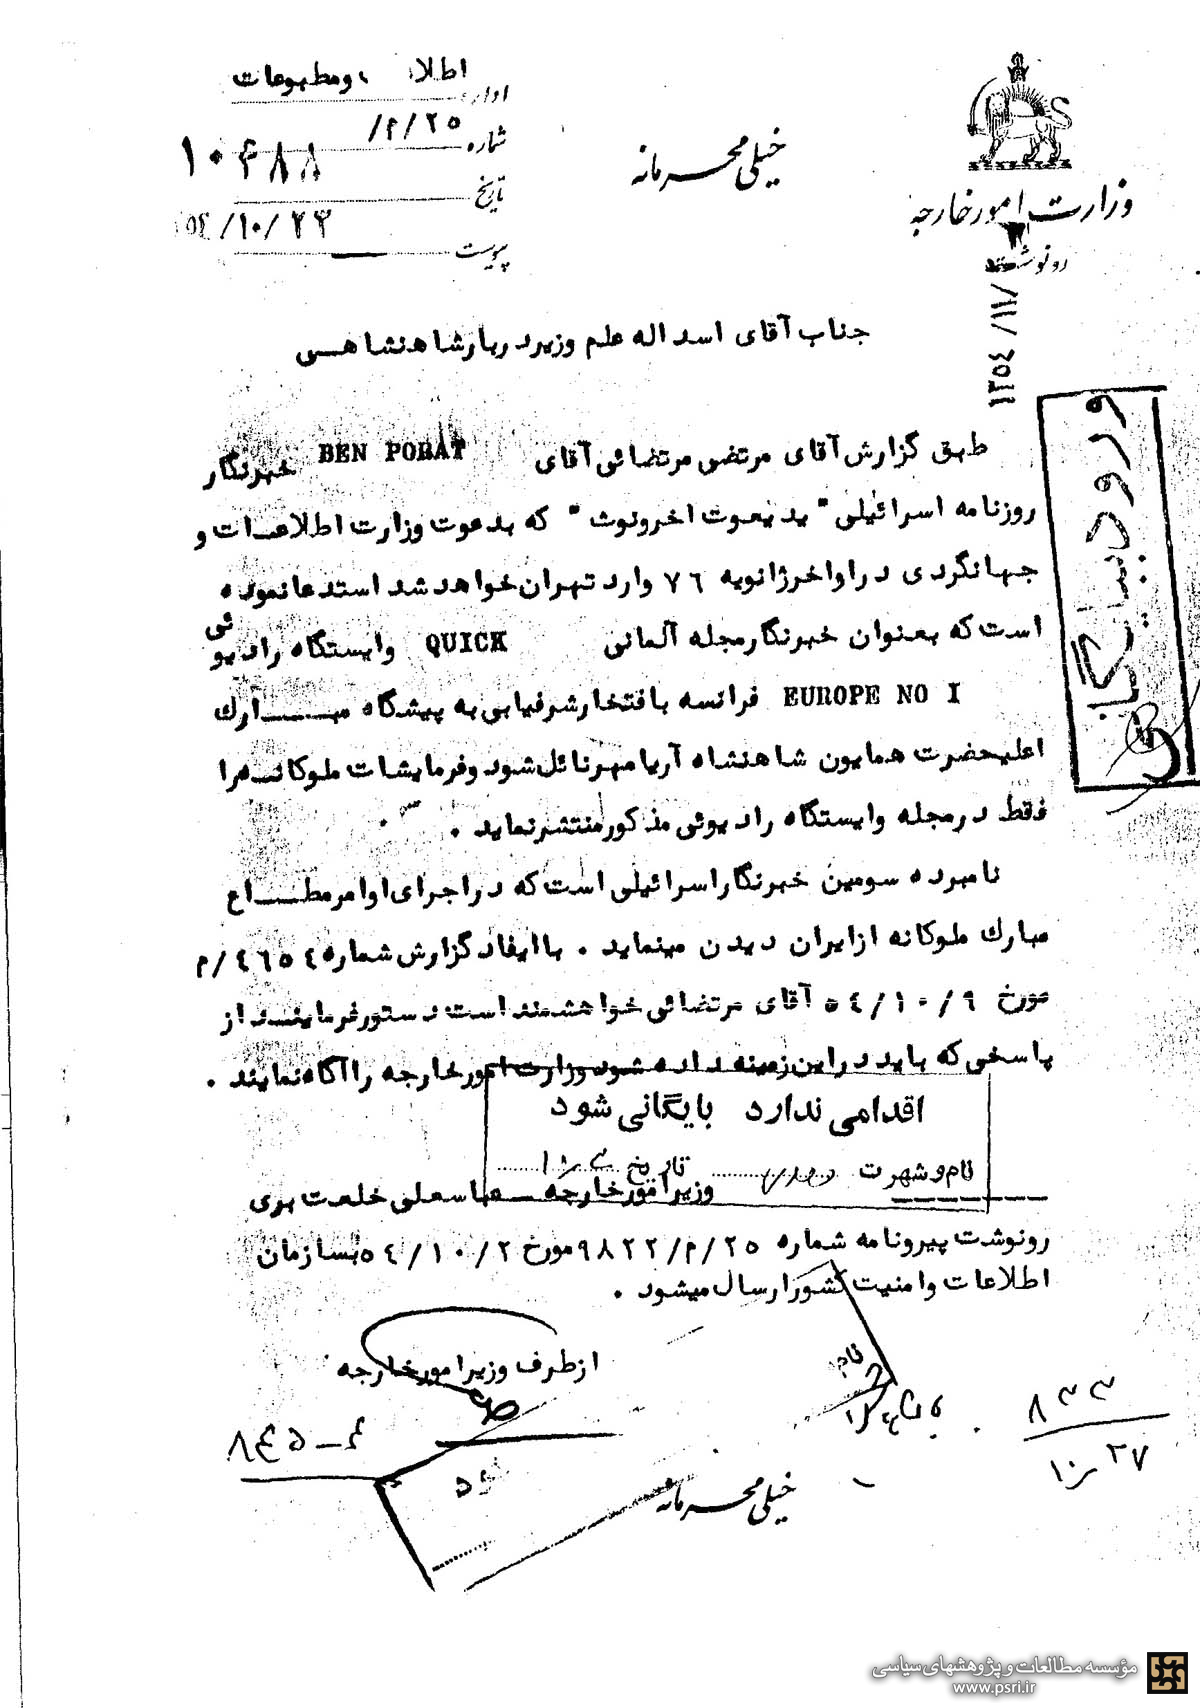 وزارت امور خارجه
رونوشت
خیلی محرمانه
اداره اطلاعات و مطبوعات
شماره ۲۵/م/
۱۰۴۸۸
تاریخ
۵۴/۱۰/۲۳
پیوست
۱۳۵۴/۱۱/
ورود ببایگانی
جناب آقای اسداله علم وزیر دربار شاهنشاهی
طبق گزارش آقای مرتضی مرتضائی آقای BEN PORAT خبرنگار
روزنامه اسرائیلی " یدیعوت اخرونوث " که بدعوت وزارت اطلاعات و
جهانگردی در اواخر ژانویه ۷۶ وارد تهران خواهد شد استدعا نموده
است که بعنوان خبرنگار مجله آلمانی QUICK و ایستگاه رادیوئی
EUROPE NO I فرانسه بافتخار شرفیابی به پیشگاه مبارك
اعلیحضرت همایون شاهنشاه آریامهر نائل شود و فرمایشات ملوکانه را
فقط در مجله و ایستگاه رادیوئی مذکور منتشر نماید .
نامبرده سومین خبرنگار اسرائیلی است که در اجرای اوامر مطاع
مبارك ملوکانه از ایران دیدن مینماید . با ایفاد گزارش شماره ٤٦٥٤/م
مورخ ٥٤/١٠/٩ آقای مرتضائی خواهشمند است دستور فرمایند از
پاسخی که باید در این زمینه داده شود وزارت امور خارجه را آگاه نمایند .
اقدامی ندارد بایگانی شود
نام و شهرت تاریخ
وزیر امور خارجه عباسعلی خلعت بری
رونوشت پیرو نامه شماره ۲۵/م/۹۸۲۲ مورخ ٥٤/١٠/٢ بسازمان
اطلاعات و امنیت کشور ارسال میشود .
از طرف وزیر امور خارجه
۸۳۳
۱۰/۲۷
خیلی محرمانه
مؤسسه مطالعات و پژوهشهای سیاسی
www.psri.ir